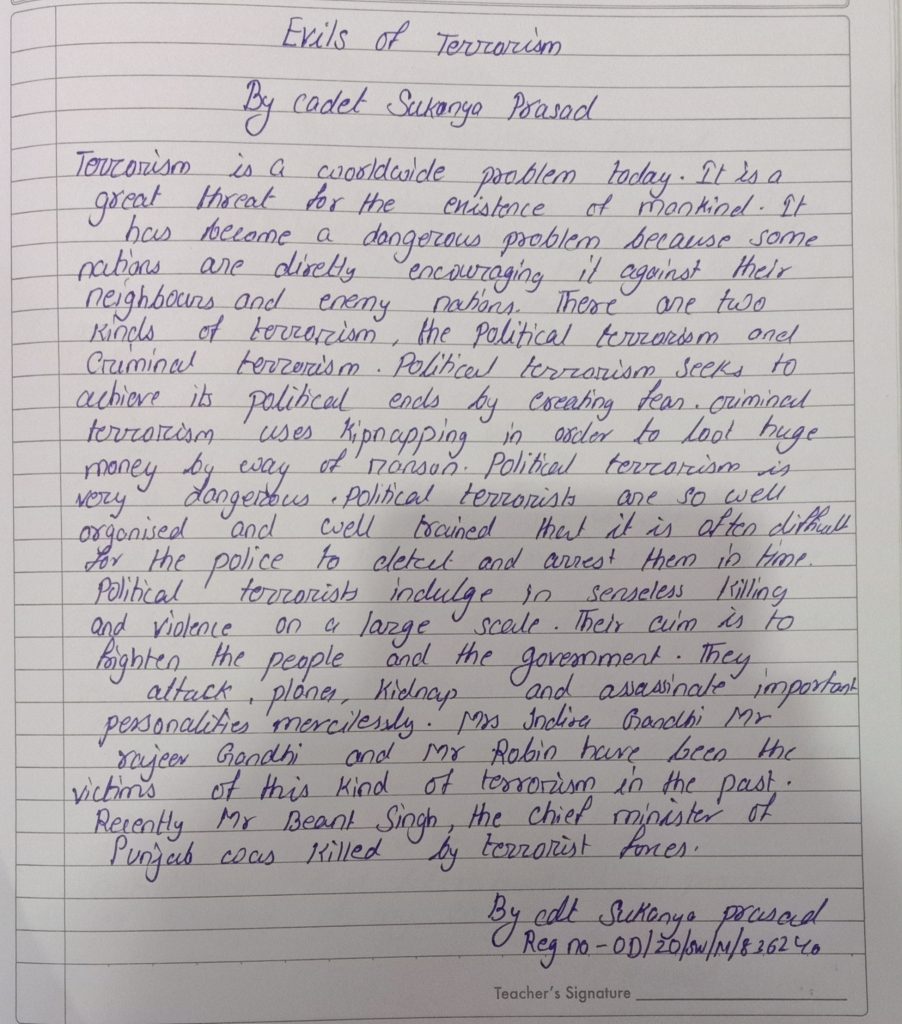 Evils of Terrorism
By cadet Sukanya Prasad
Terrorism is a worldwide problem today. It is a
great threat for the existence of mankind. It
has become a dangerous problem because some
nations are diretly encouraging it against their
neighbours and enemy nations. There are two
kinds of terrorism, the political terrorism and
Criminal terrorism. Political terrorism seeks to
achieve its political ends by creating fear. criminal
terrorism uses kipnapping in order to loot huge
money by way of ranson. Political terrorism is
very dangerous. Political terrorists are so well
organised and well trained that it is often difficult
for the police to detect and arrest them in time.
Political terrorists indulge in senseless killing
and violence on a large scale. Their aim is to
frighten the people and the government. They
attack, planes, kidnap and assassinate important
personalities mercilessly. Mrs Indira Gandhi Mr
rajeev Gandhi and Mr Robin have been the
victims of this kind of terrorism in the past.
Recently Mr Beant Singh, the chief minister of
Punjab was killed by terrorist forces.
By cdt Sukanya prasad
Reg no - OD/20/SW/M/836240
Teacher's Signature